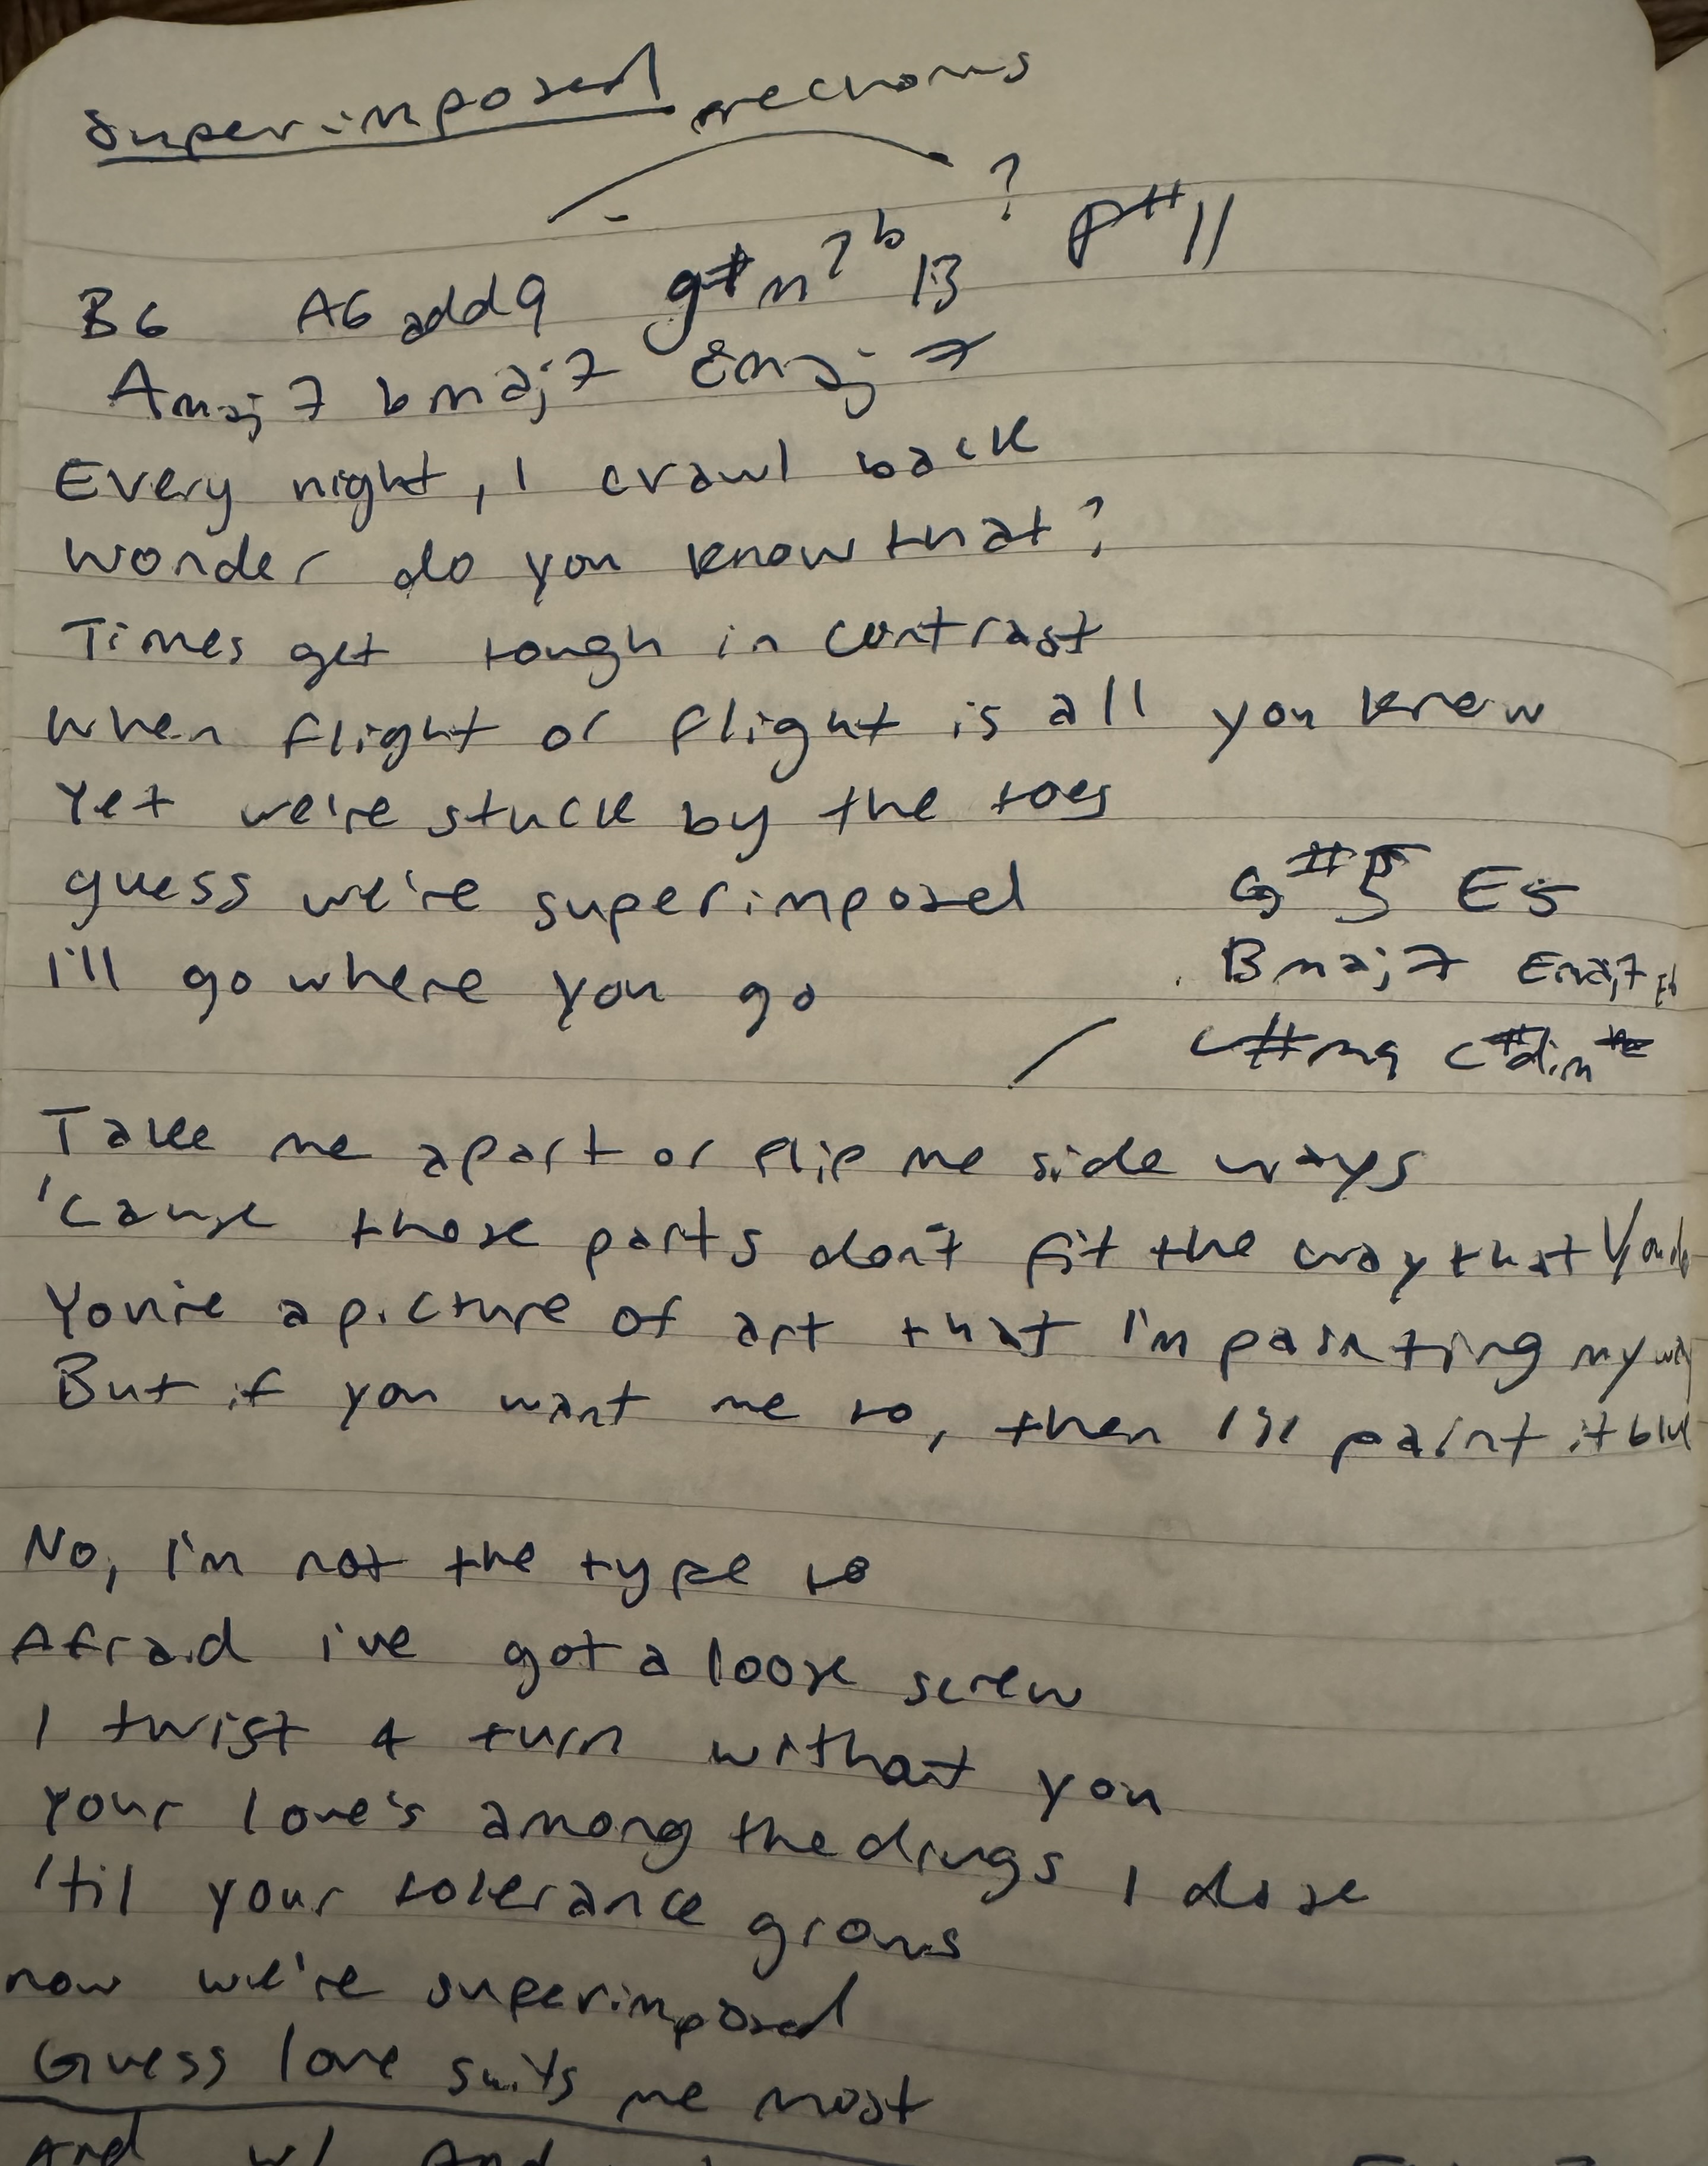 Superimposed
B6 A6 add9 g#m7b13 ? F#11
Amaj7 bmaj7 emaj7
Every night, I crawl back
wonder do you know that?
Times get tough in contrast
when flight or flight is all you know
Yet we're stuck by the toes
guess we're superimposed
G#5 E5
I'll go where you go
Bmaj7 Emaj7
C#m9 C#dim
Take me apart or flip me side ways
'cause those parts don't fit the way that you do
You're a picture of art that I'm painting my way
But if you want me to, then I'll paint it blue
No, I'm not the type to
Afraid i've got a loose screw
I twist & turn without you
Your love's among the drugs I dose
'til your tolerance grows
now we're superimposed
Guess love suits me most
And w/ And